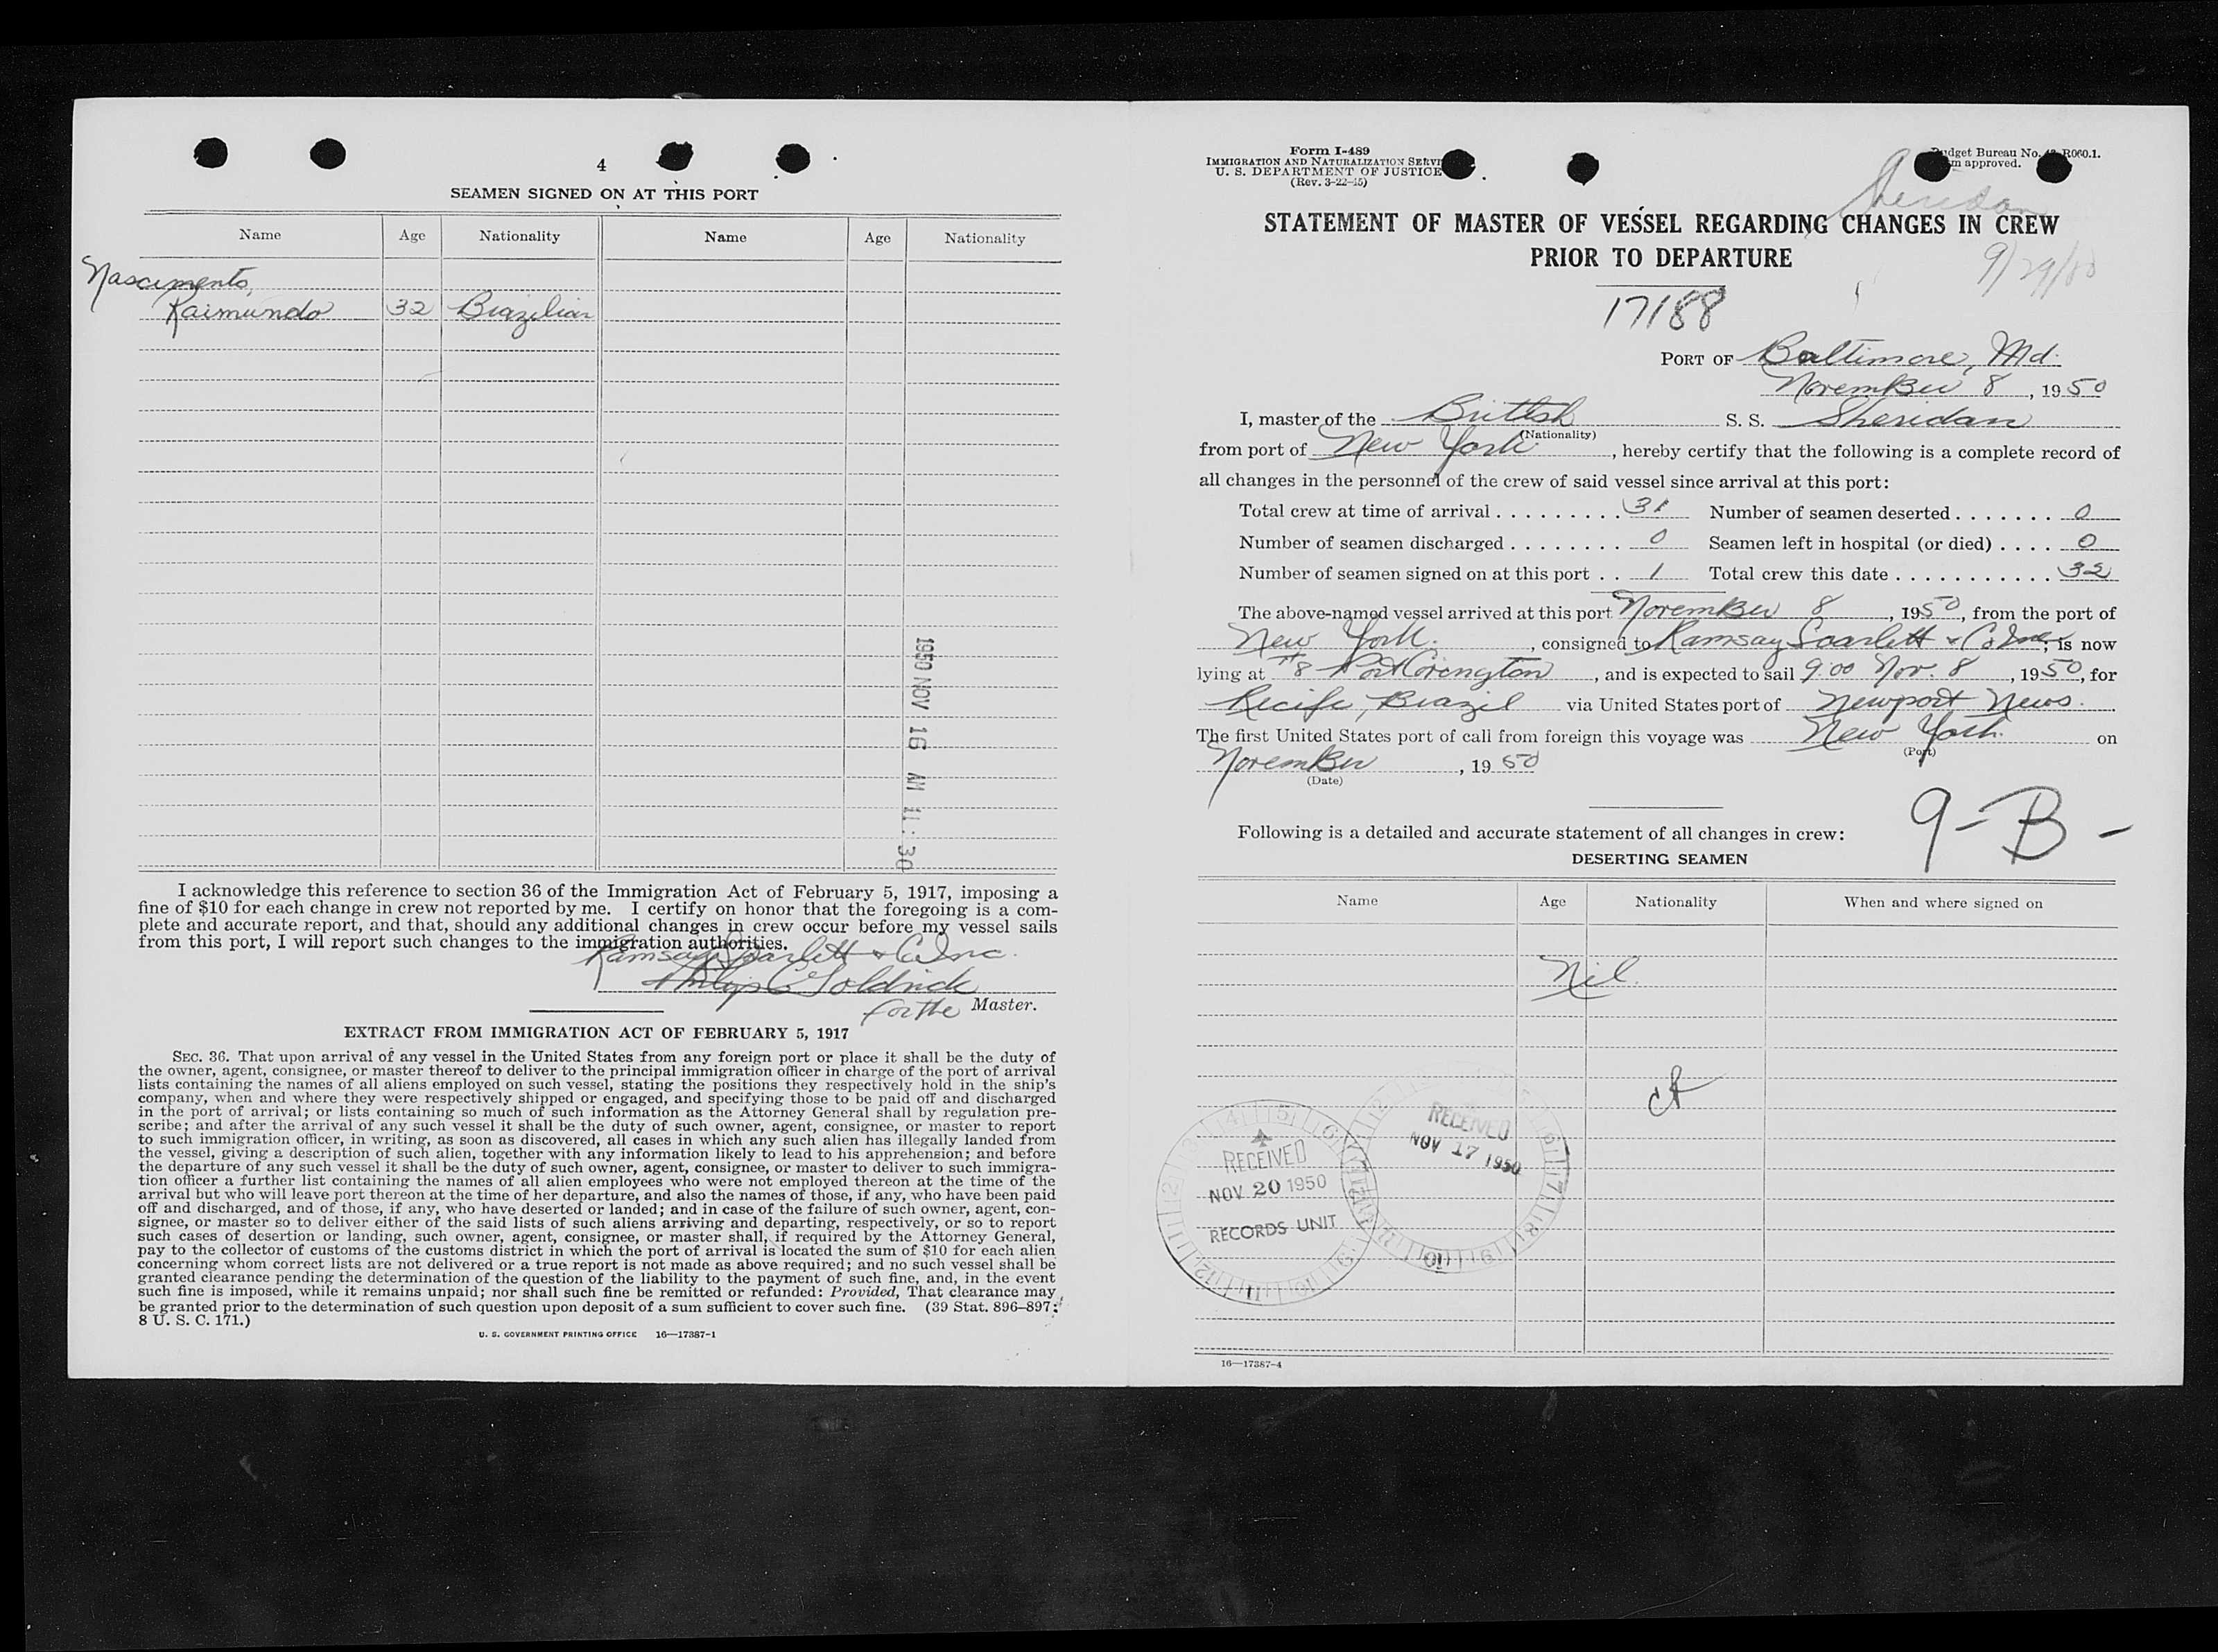 4
SEAMEN SIGNED ON AT THIS PORT
Name Age Nationality Name Age Nationality
Nascimento,
Raimundo 32 Brazilian
1950 NOV 16 AM 11:30
I acknowledge this reference to section 36 of the Immigration Act of February 5, 1917, imposing a
fine of $10 for each change in crew not reported by me. I certify on honor that the foregoing is a com-
plete and accurate report, and that, should any additional changes in crew occur before my vessel sails
from this port, I will report such changes to the immigration authorities.
Ramsay Scarlett & Co Inc.
Philip C Goldrick
for the Master.
EXTRACT FROM IMMIGRATION ACT OF FEBRUARY 5, 1917
SEC. 36. That upon arrival of any vessel in the United States from any foreign port or place it shall be the duty of
the owner, agent, consignee, or master thereof to deliver to the principal immigration officer in charge of the port of arrival
lists containing the names of all aliens employed on such vessel, stating the positions they respectively hold in the ship's
company, when and where they were respectively shipped or engaged, and specifying those to be paid off and discharged
in the port of arrival; or lists containing so much of such information as the Attorney General shall by regulation pre-
scribe; and after the arrival of any such vessel it shall be the duty of such owner, agent, consignee, or master to report
to such immigration officer, in writing, as soon as discovered, all cases in which any such alien has illegally landed from
the vessel, giving a description of such alien, together with any information likely to lead to his apprehension; and before
the departure of any such vessel it shall be the duty of such owner, agent, consignee, or master to deliver to such immigra-
tion officer a further list containing the names of all alien employees who were not employed thereon at the time of the
arrival but who will leave port thereon at the time of her departure, and also the names of those, if any, who have been paid
off and discharged, and of those, if any, who have deserted or landed; and in case of the failure of such owner, agent, con-
signee, or master so to deliver either of the said lists of such aliens arriving and departing, respectively, or so to report
such cases of desertion or landing, such owner, agent, consignee, or master shall, if required by the Attorney General,
pay to the collector of customs of the customs district in which the port of arrival is located the sum of $10 for each alien
concerning whom correct lists are not delivered or a true report is not made as above required; and no such vessel shall be
granted clearance pending the determination of the question of the liability to the payment of such fine, and, in the event
such fine is imposed, while it remains unpaid; nor shall such fine be remitted or refunded: Provided, That clearance may
be granted prior to the determination of such question upon deposit of a sum sufficient to cover such fine. (39 Stat. 896–897;
8 U. S. C. 171.)
U. S. GOVERNMENT PRINTING OFFICE 16—17387-1
Form I-489
IMMIGRATION AND NATURALIZATION SERVI
U. S. DEPARTMENT OF JUSTICE
(Rev. 3-22-45)
Budget Bureau No. R060.1.
m approved.
Sheridan
STATEMENT OF MASTER OF VESSEL REGARDING CHANGES IN CREW
PRIOR TO DEPARTURE
9/29/50
17188
PORT OF Baltimore, Md.
November 8, 1950
I, master of the British S. S. Sheridan
(Nationality)
from port of New York, hereby certify that the following is a complete record of
all changes in the personnel of the crew of said vessel since arrival at this port:
Total crew at time of arrival . . . . . . . . . 31 Number of seamen deserted . . . . . . . 0
Number of seamen discharged . . . . . . . . 0 Seamen left in hospital (or died) . . . . 0
Number of seamen signed on at this port . . 1 Total crew this date . . . . . . . . . . . . 32
The above-named vessel arrived at this port November 8, 1950, from the port of
New York., consigned to Ramsay Scarlett & Co Inc; is now
lying at #8 Port Covington, and is expected to sail 9:00 Nov. 8, 1950, for
Recife, Brazil via United States port of Newport News.
The first United States port of call from foreign this voyage was New York. on
(Port)
November, 1950
(Date)
9-B-
Following is a detailed and accurate statement of all changes in crew:
DESERTING SEAMEN
Name Age Nationality When and where signed on
Nil.
RECEIVED
NOV 17 1950
RECEIVED
NOV 20 1950
RECORDS UNIT
16—17387-4